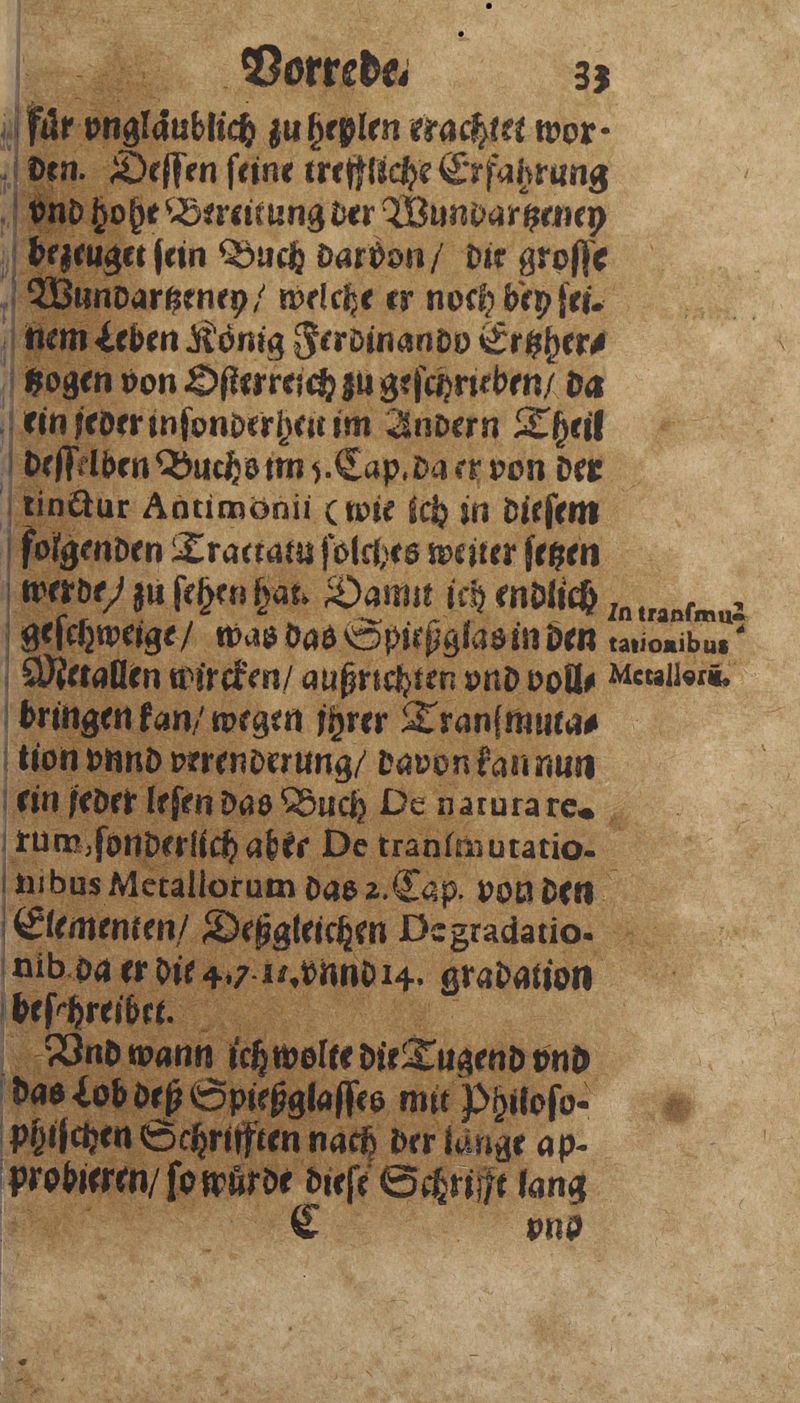 Vorrede. 33
für vngläublich zu heylen erachtet wor-
den. Deſſen ſeine treffliche Erfahrung
vnd hohe Bereitung der Wundartzeney
bezeuget ſein Buch darvon / die groſſe
Wundartzeney / welche er noch bey ſei-
nem Leben König Ferdinando Ertzher-
tzogen von Oſterreich zu geſchrieben / da
ein jeder inſonderheit im Andern Theil
deſſelben Buchs im 5. Cap. da er von der
tinctur Antimonii (wie ich in dieſem
folgenden Tractatu ſolches weiter ſetzen
werde) zu ſehen hat. Damit ich endlich
geſchweige / was das Spießglas in den
Metallen wircken / außrichten vnd voll-
bringen kan / wegen jhrer Tranſmuta-
tion vnnd verenderung / davon kan nun
ein jeder leſen das Buch De natura re-
rum, ſonderlich aber De tranſmutatio-
nibus Metallorum das 2. Cap. von den
Elementen / Deßgleichen De gradatio-
nib. da er die 4. 7. 11. vnnd 14. gradation
beſchreibet.
Vnd wann ich wolte die Tugend vnd
das Lob deß Spießglaſſes mit Philoſo-
phiſchen Schrifften nach der länge ap-
probieren / ſo würde dieſe Schrifft lang
C vnd
In tranſmu-
tationibus
Metallorū.